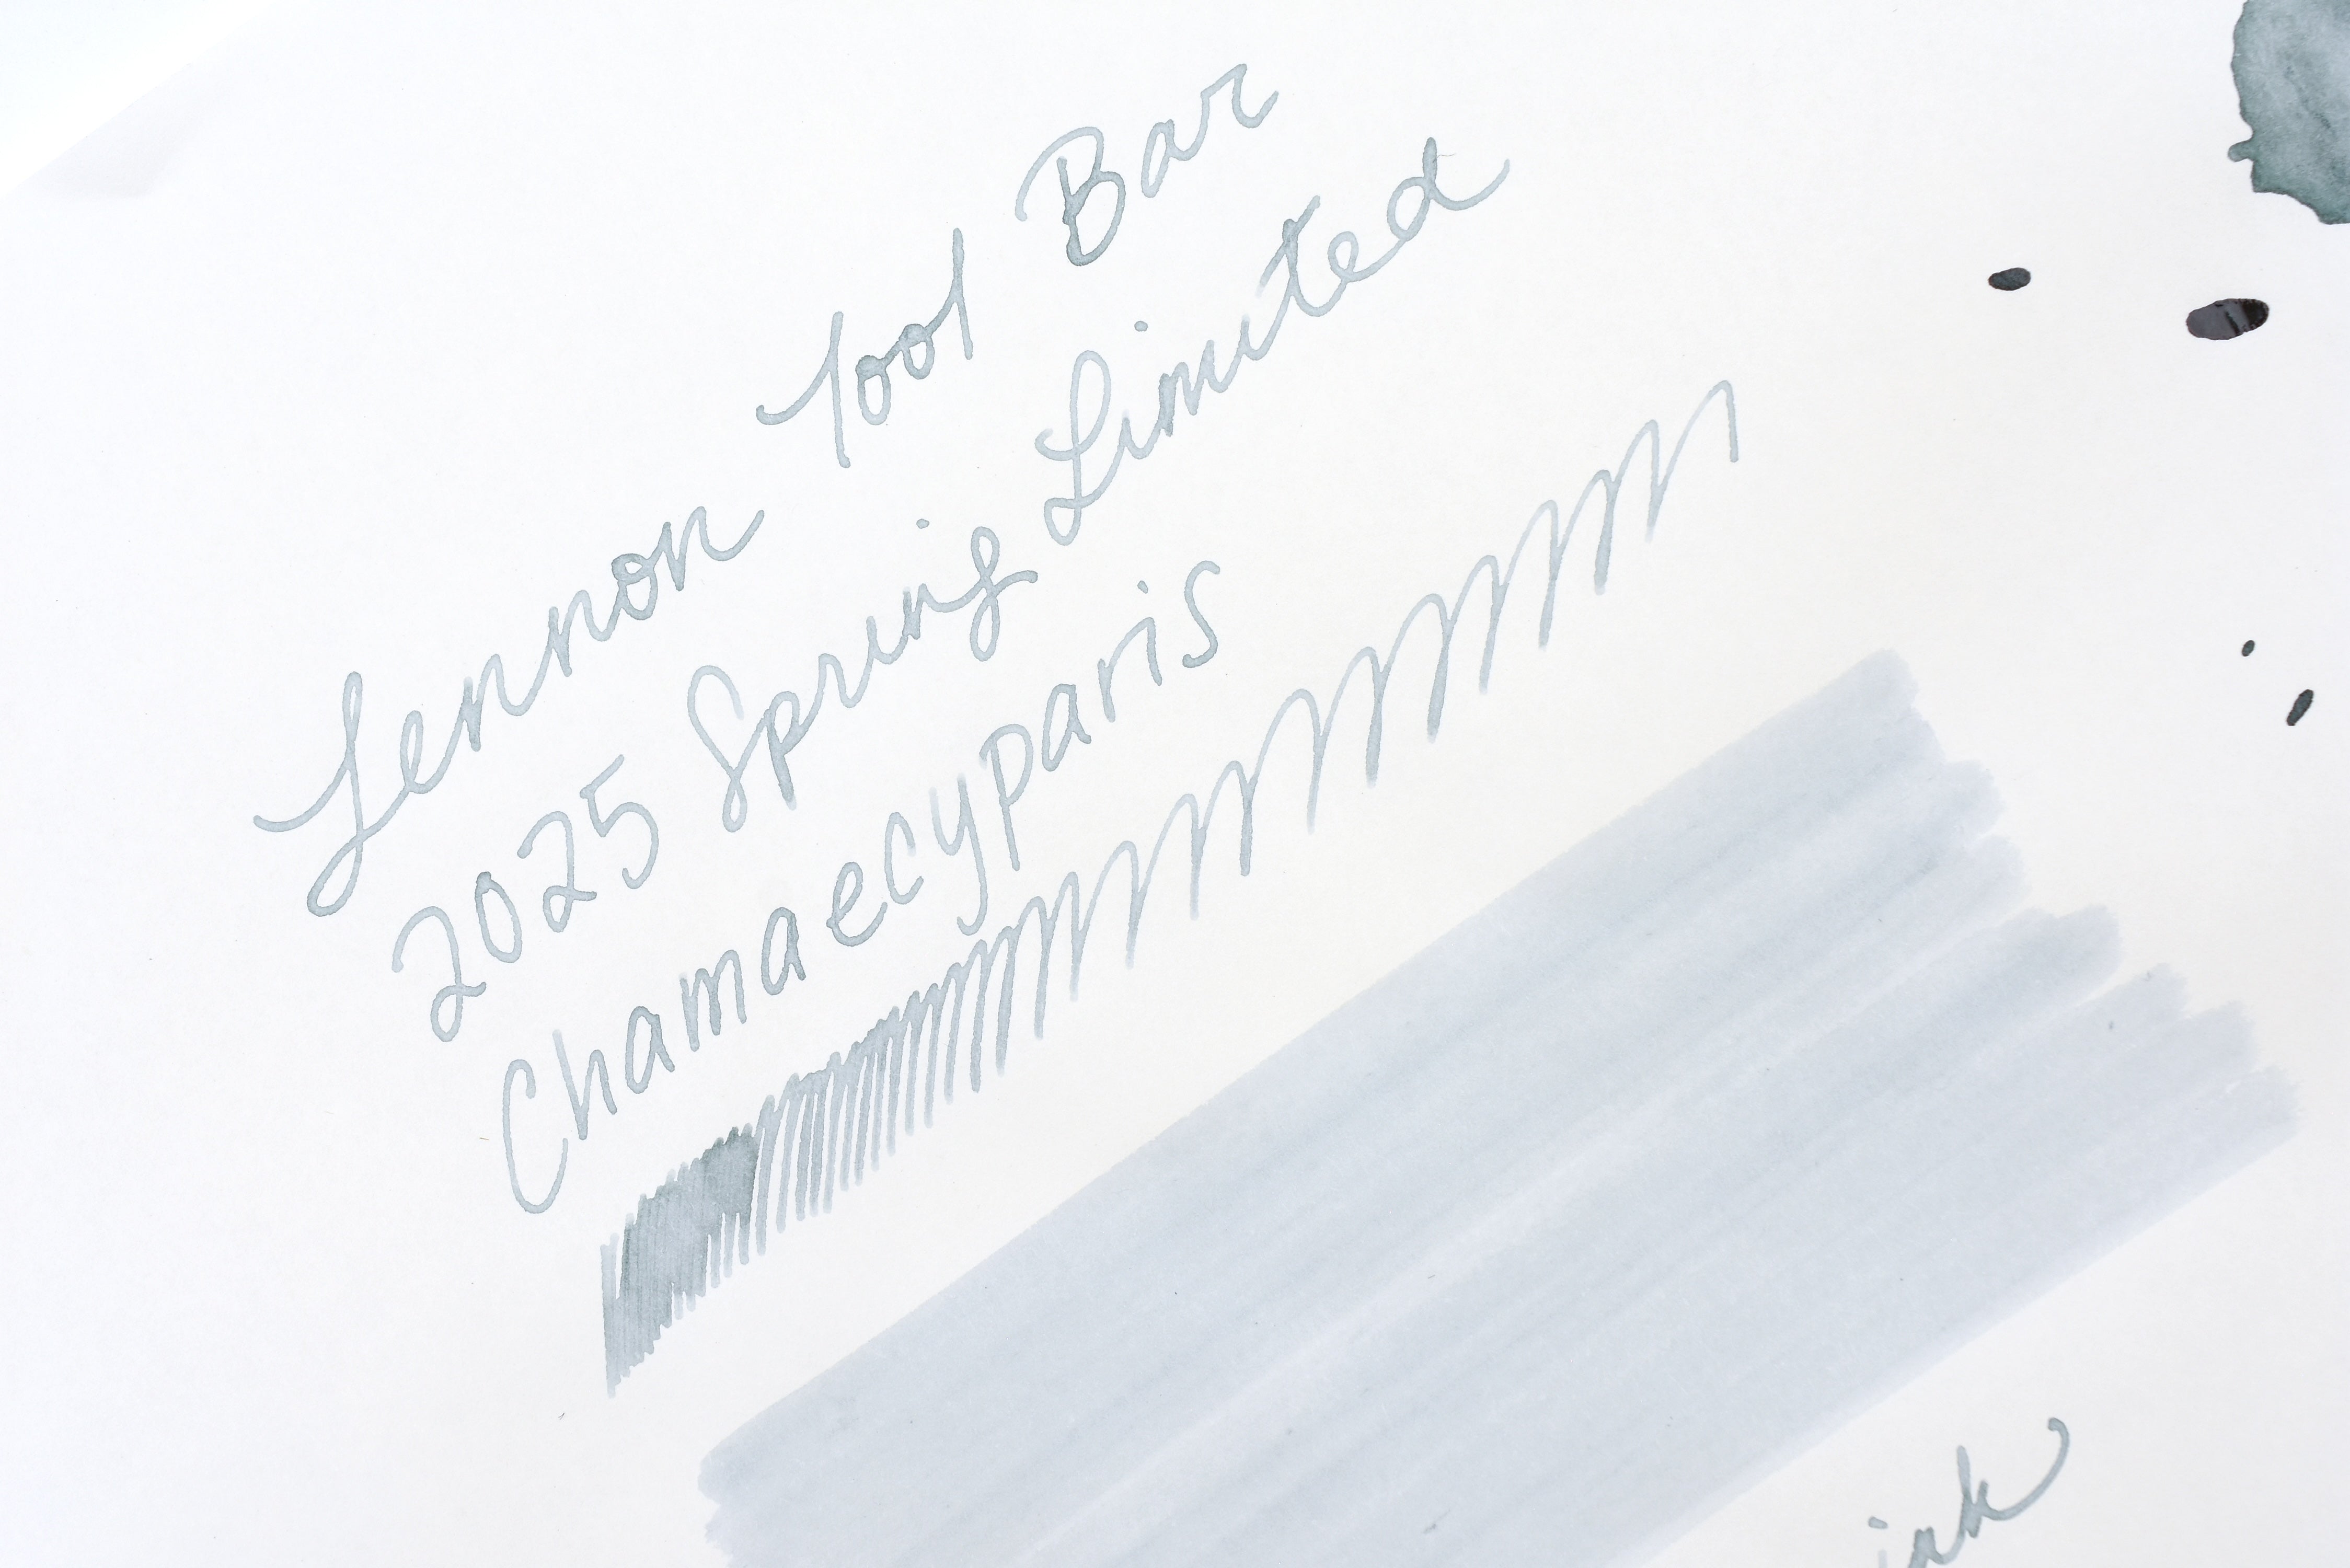 Lennon Tool Bar
2025 Spring Limited
Chamaecyparis
ink